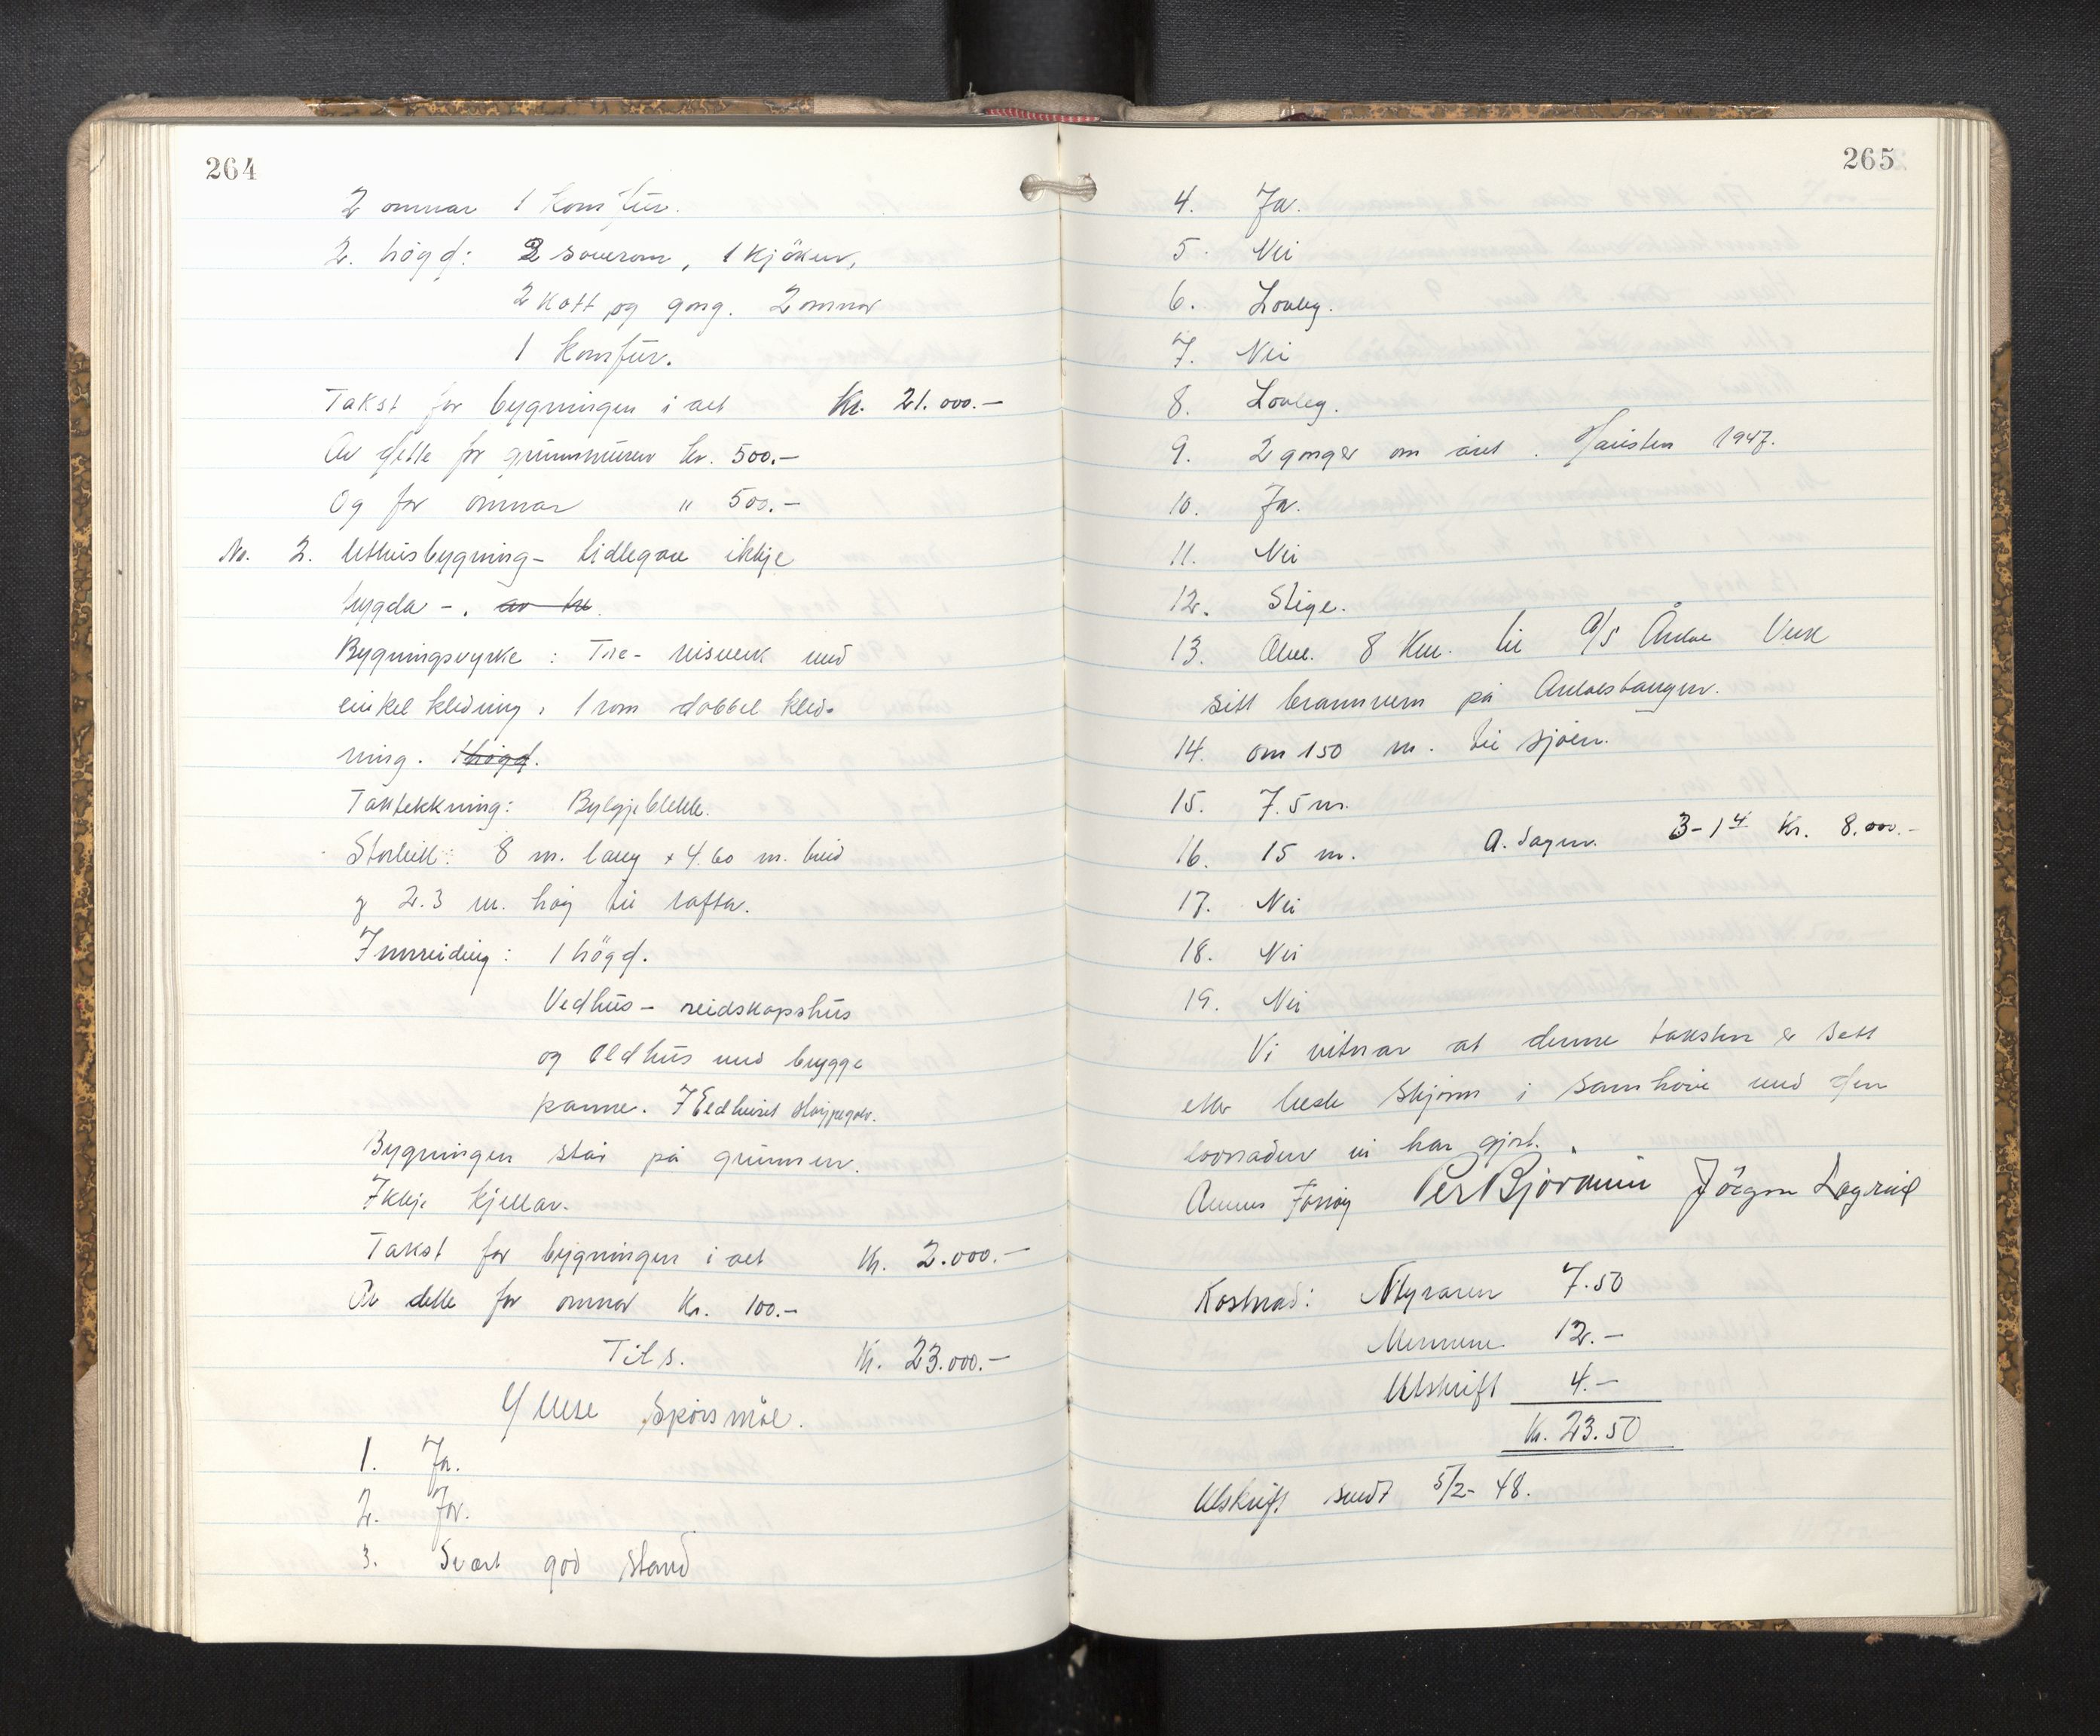 264
2 omnar 1 komfur.
2. högd: 2 soverom, 1 kjöken,
2 kott og gong. 2 omnar
1 komfur.
Takst for bygningen i alt Kr. 21.000.—
Av dette for grunnmuren kr. 500.—
Og for omnar " 500.—
No. 2. Uthusbygning- tidlegare ikkje
trygda -. av tre.
Bygningsvyrke : Tre- reisverk med
einkel kledning, 1 rom dobbel kled-
ning. 1 högd.
Taktekkning: Bylgjeblekk.
Storleik: 8 m. lang x 4.60 m. breid
og 2.3 m. høg til rafta.
Innreiding: 1 högd.
Vedhus- reidskapshus
og eldhus med brygge
panne. I Eldhuset støypegolv.
Bygningen står på grunnen.
Ikkje kjellar.
Takst for bygningen i alt Kr. 2.000.—
Av dette for omnar Kr. 100.—
Tils. Kr. 23.000.—
Ymse Spörsmål.
1. Ja.
2. Ja.
3. Svært god stand
265
4. Ja.
5. Nei
6. Lovleg.
7. Nei
8. Lovleg.
9. 2 gonger om året. Hausten 1947.
10. Ja.
11. Nei
12. Stige.
13. Om. 8 Km. til A/S Årdal Verk
sitt brannvern på Årdalstangen.
14. om 150 m. til sjøen.
15. 7.5 m.
16. 15 m. A. Sagen. 3-1 4 Kr. 8.000.—
17. Nei
18. Nei
19. Nei
Vi vitnar at denne taksten er sett
etter beste skjønn i samhøve med den
lovnaden vi har gjort.
Per Bjørkum Jörgen Lægreid
Kostnad: Styraren 7.50
Mennene 12.—
Utskrift 4.—
Kr. 23.50
Utskrift sendt 5/2- 48.